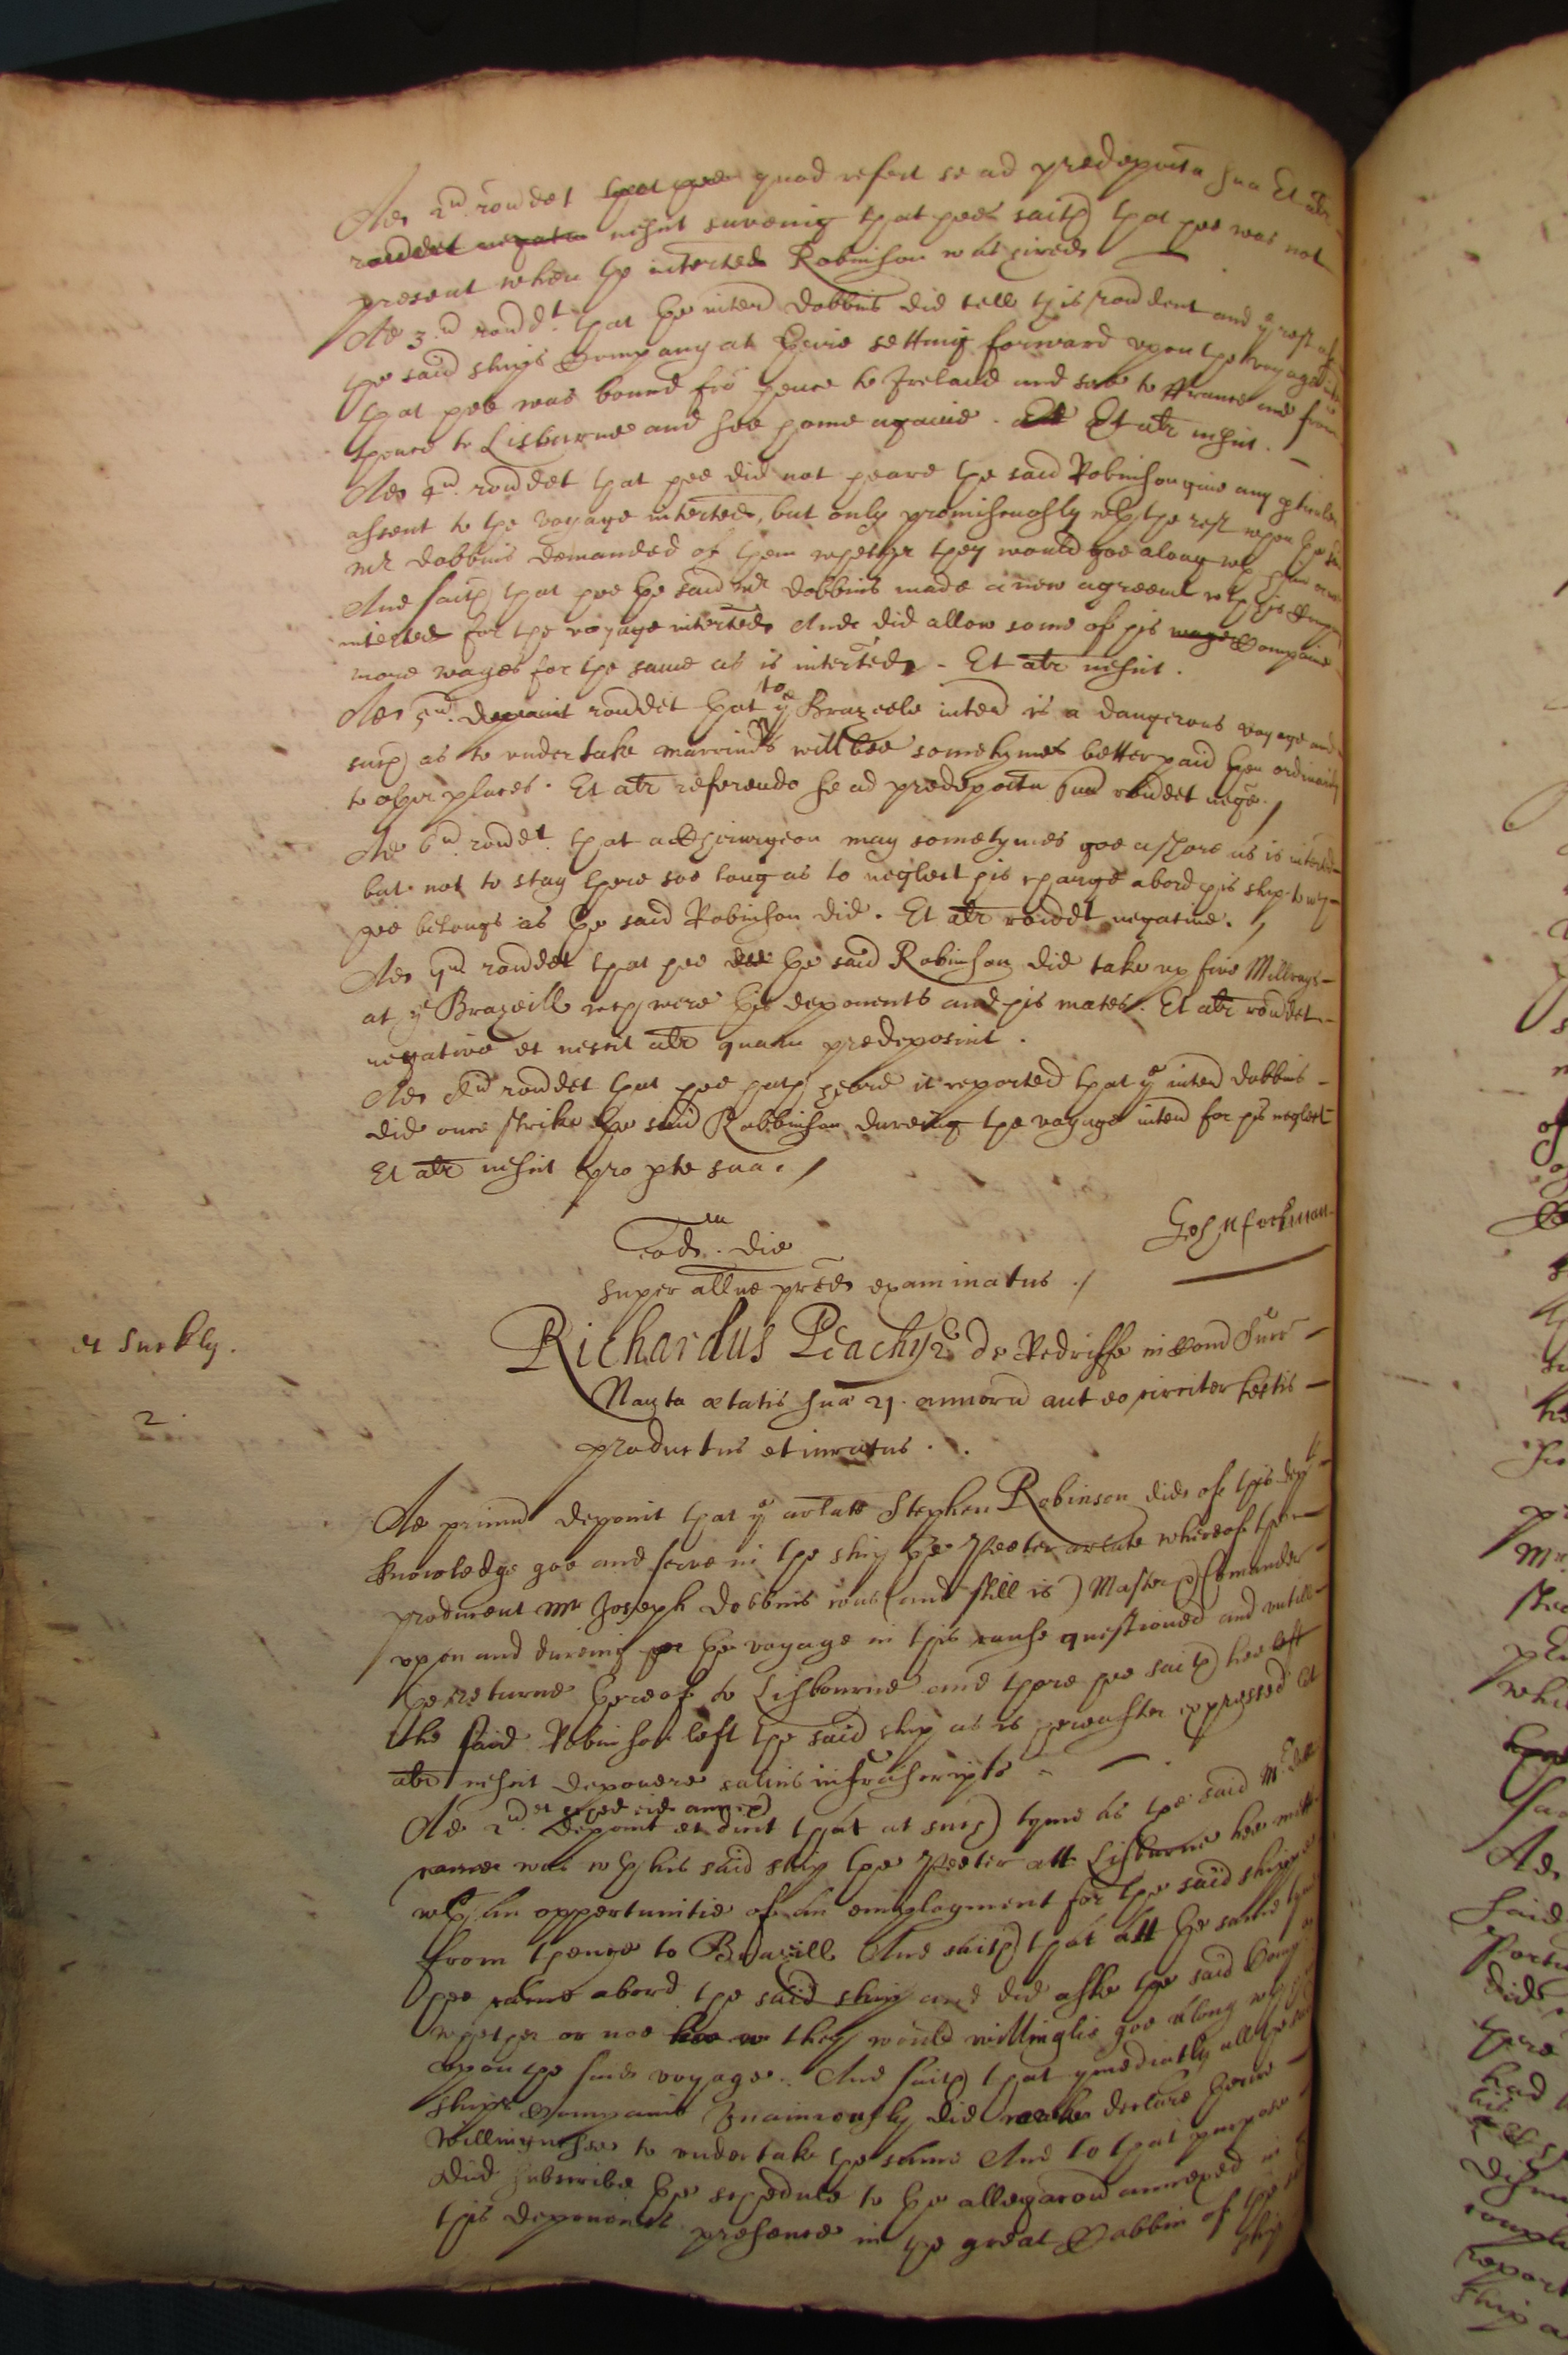 Ad 2um rondet that hee quod refert se ad predeposita sua Et alr
rondet negative nescit saveing that hee saith that hee was not
present when the interted Robinson was hired
Ad 3um rondt. that the interd Dobbins did tell this rondent and ye rest of
the said ships Company at their setting forward upon the voyage
that hee was bound fro hence to Ireland and soe to ffrance and from
thence to Lisburne and soe home againe. Et Et alr nescit.
Ad 4um rondet that hee did not heare the said Robinson give any pticuler
assent to the voyage interted, but only promiscuously wth the rest upon the sd
Mr Dobbins demanded of them whether they would goe along wth him
And saith that hee the said Mr Dobbins made a new agreemt wth his
interted for the voyage interted And did allow some of his wages Companie
more wages for the same as is interted. Et alr nescit.
Ad 5um. deponit rondet that to ye Brazeele interd is a dangerous voyage and
such as to undertake marriners will bee sometymes better paid then ordinarily
to other places. Et alr referendo se ad predeposita sua rondet nege.
Ad 6um rondet. that a Chirurgeon may sometymes goe ashore as is interted
but not to stay there soe long as to neglect his charge abord his ship to wch
hee belongs as the said Robinson did. Et alr rondet negative.
Ad 7um rondet that hee did the said Robinson did take up five Millrays
at ye Brazeill wch were this deponents and his mates. Et alr rondet
negative et nescit alr quam predeposuit.
Ad 8um rondet that hee hath heard it reported that ye interd Dobbins
did once strike the said Robbinson dureing the voyage interd for his neglect
Et alr nescit pro pte sua.
Eodm. die
super allne pred examinatus
et Suckly.
2
Richardus Peachy de Redriffe in Com Surr
Nauta ætatis suæ 21. annoru aut eo circiter testis
productus et iuratus.
Ad primu deponit that ye arlate Stephen Robinson did of this depts
knowledge goe and serve in the ship the Peeter arlate whereof the
producent Mr Joseph Dobbins was (and still is) Master & Comander
upon and dureing the voyage in this cause questioned and untill
the returne thereof to Lisbourne and there hee saith hee left
the said Robinson left the said ship as is hereafter expressed Et
alr nescit deponere salvis infrascriptis
Ad 2um et sched eid annex
deponit et dicit that at such tyme as the said Mr
was wth his said ship the Peeter att Lisburne hee mett
wth an oppertunitie of an employment for the said shipp
from thence to Brazill And saith that att the same tyme
hee came abord the said ship and did aske the said Comp
whether or noe hee w they would willinglie goe along wth
upon the said voyage. And saith that ymediatly all the said
ships Companie Unaimously did declare theire
willingnesse to undertake the same And to that purpose
did subscribe the schedule to the allegacon annexed in
this deponents presence in the great Cabbin of the sd
ship